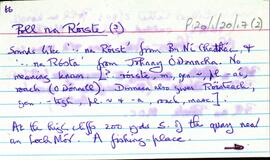 66
Poll na Róiste (?)
P20/1/20/17 (2)
Sounds like '.. na Róist' from Bn Ní &
'.. na Rósta' from Johnny O Donncha. No
meaning known [?. róiste, m., gen -, pl. - aí,
roach (O Dónaill). Dinneen also gives Róisteach,
gen. - tigh, pl. - a, roach, masc.].
At the high cliffs 200 yards S. of the quay near
an Loch Mór. A fishing place.